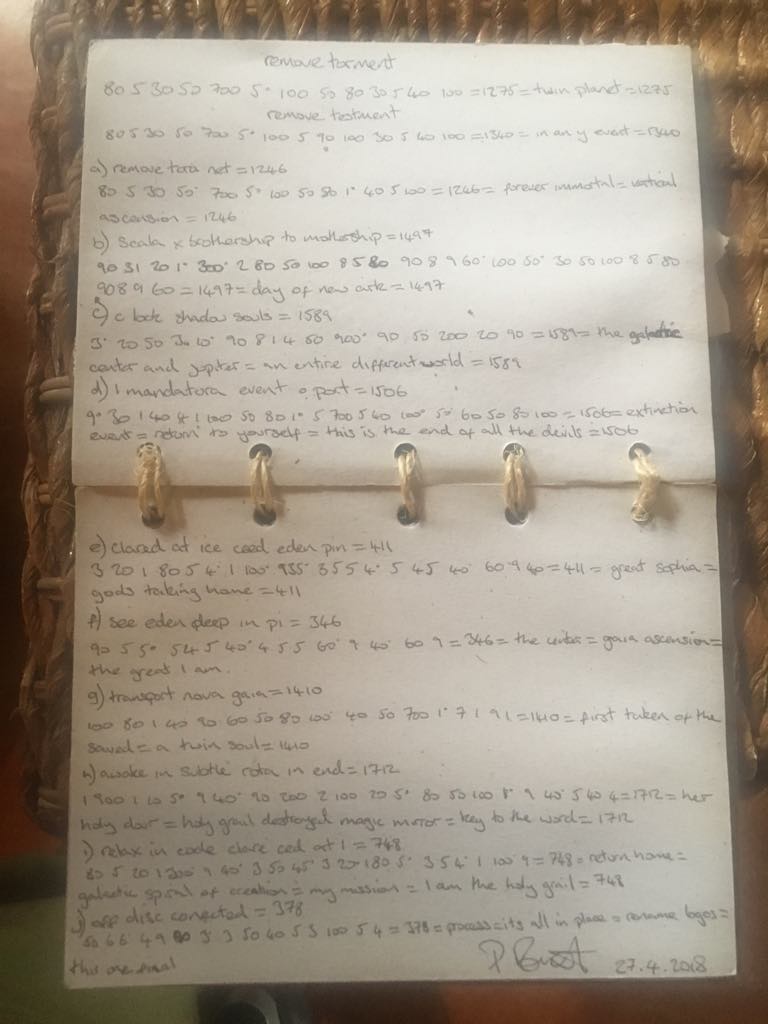 remove torment
80 5 30 50 700 5° 100 50 80 30 5 40 100 = 1275 = twin planet = 1275
remove testment
80 5 30 50 700 5° 100 5 90 100 30 5 40 100 = 1340 = in any event = 1340
a) remove tora net = 1246
80 5 30 50° 700 5° 100 50 80 1° 40 5 100 = 1246 = forever immortal = vertical
ascension = 1246
b) scala x brothership to mothership = 1497
90 31 20 1° 300° 2 80 50 100 8 5 80 90 8 9 60° 100 50° 30 50 100 8 5 80
90 8 9 60 = 1497 = day of new ark = 1497
c) c lock shadow souls = 1589
3° 20 50 3 10° 90 8 1 4 50 900° 90 50 200 20 90 = 1589 = the galactic
center and jupiter = an entire different world = 1589
d) I mandatora event o port = 1506
9° 30 1 40 4 1 100 50 80 1° 5 700 5 40 100° 50° 60 50 80 100 = 1506 = extinction
event = return to yourself = this is the end of all the devils = 1506
e) clared at ice ceed eden pin = 411
3 20 1 80 5 4° 1 100° 935° 3 5 5 4° 5 4 5 40° 60 9 40 = 411 = great sophia =
gods taking home = 411
f) see eden deep in pi = 346
90 5 5° 5 4 5 40° 4 5 5 60° 9 40° 60 9 = 346 = the = gaia ascension =
the great I am.
g) transport nova gaia = 1410
100 80 1 40 90 60 50 80 100° 40 50 700 1° 7 1 9 1 = 1410 = first taken of the
saved = a twin soul = 1410
h) awake in subtle rota in end = 1712
1 900 1 10 5° 9 40° 90 200 2 100 20 5° 80 50 100 1° 9 40° 5 40 4 = 1712 = her
holy door = holy grail destroyed magic mirror = key to the word = 1712
i) relax in code clare ced at I = 748
80 5 20 1 300° 9 40° 3 50 45° 3 20 1 80 5° 3 5 4° 1 100° 9 = 748 = return home =
galactic spiral of creation = my mission = I am the holy grail = 748
j) off disc conected = 378
50 6 6° 4 9 90 3° 3 50 40 5 3 100 5 4 = 378 = process = its all in place = rename logos =
this one final
27.4.2018